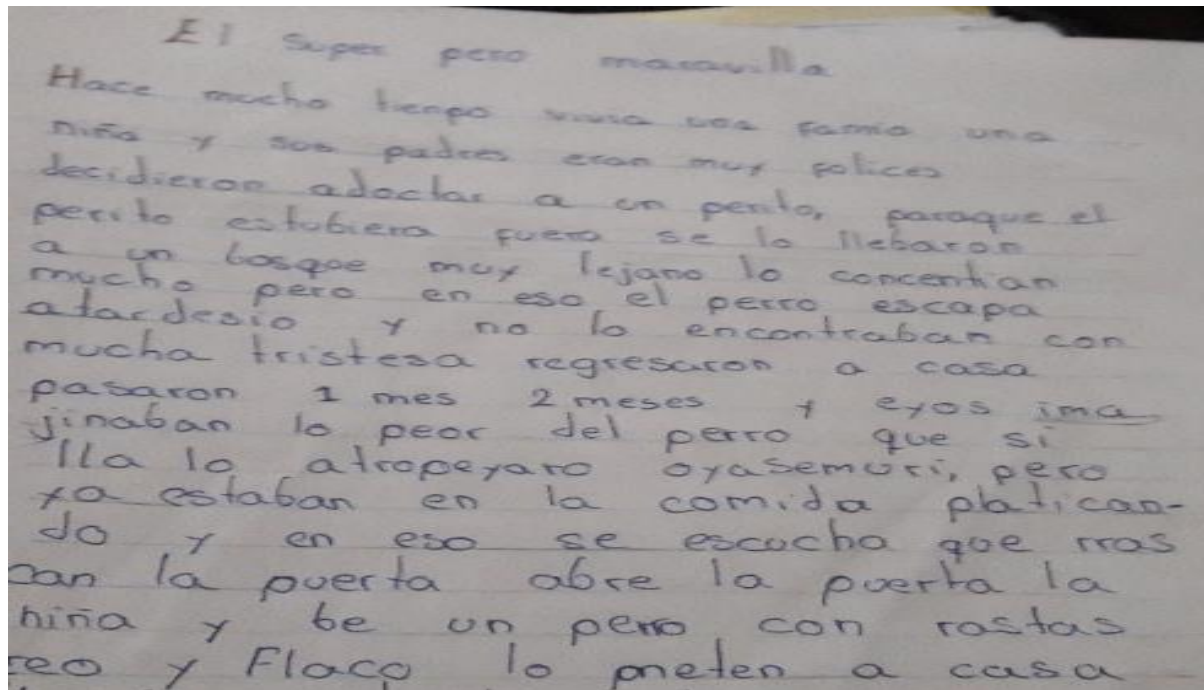 El Super pero maravilla
Hace mucho tienpo vivia una famia una
niña y sus padres eran muy felices
decidieron adoctar a un perito, paraque el
perrito estubiera fuera se lo llebaron
a un bosque muy lejano lo concentian
mucho pero en eso el perro escapa
atardesio y no lo encontraban con
mucha tristesa regresaron a casa
pasaron 1 mes 2 meses y eyos ima
jinaban lo peor del perro que si
lla lo atropeyaro oyasemuri, pero
ya estaban en la comida platican-
do y en eso se escucho que rras
can la puerta abre la puerta la
niña y be un perro con rastas
reo y Flaco lo meten a casa